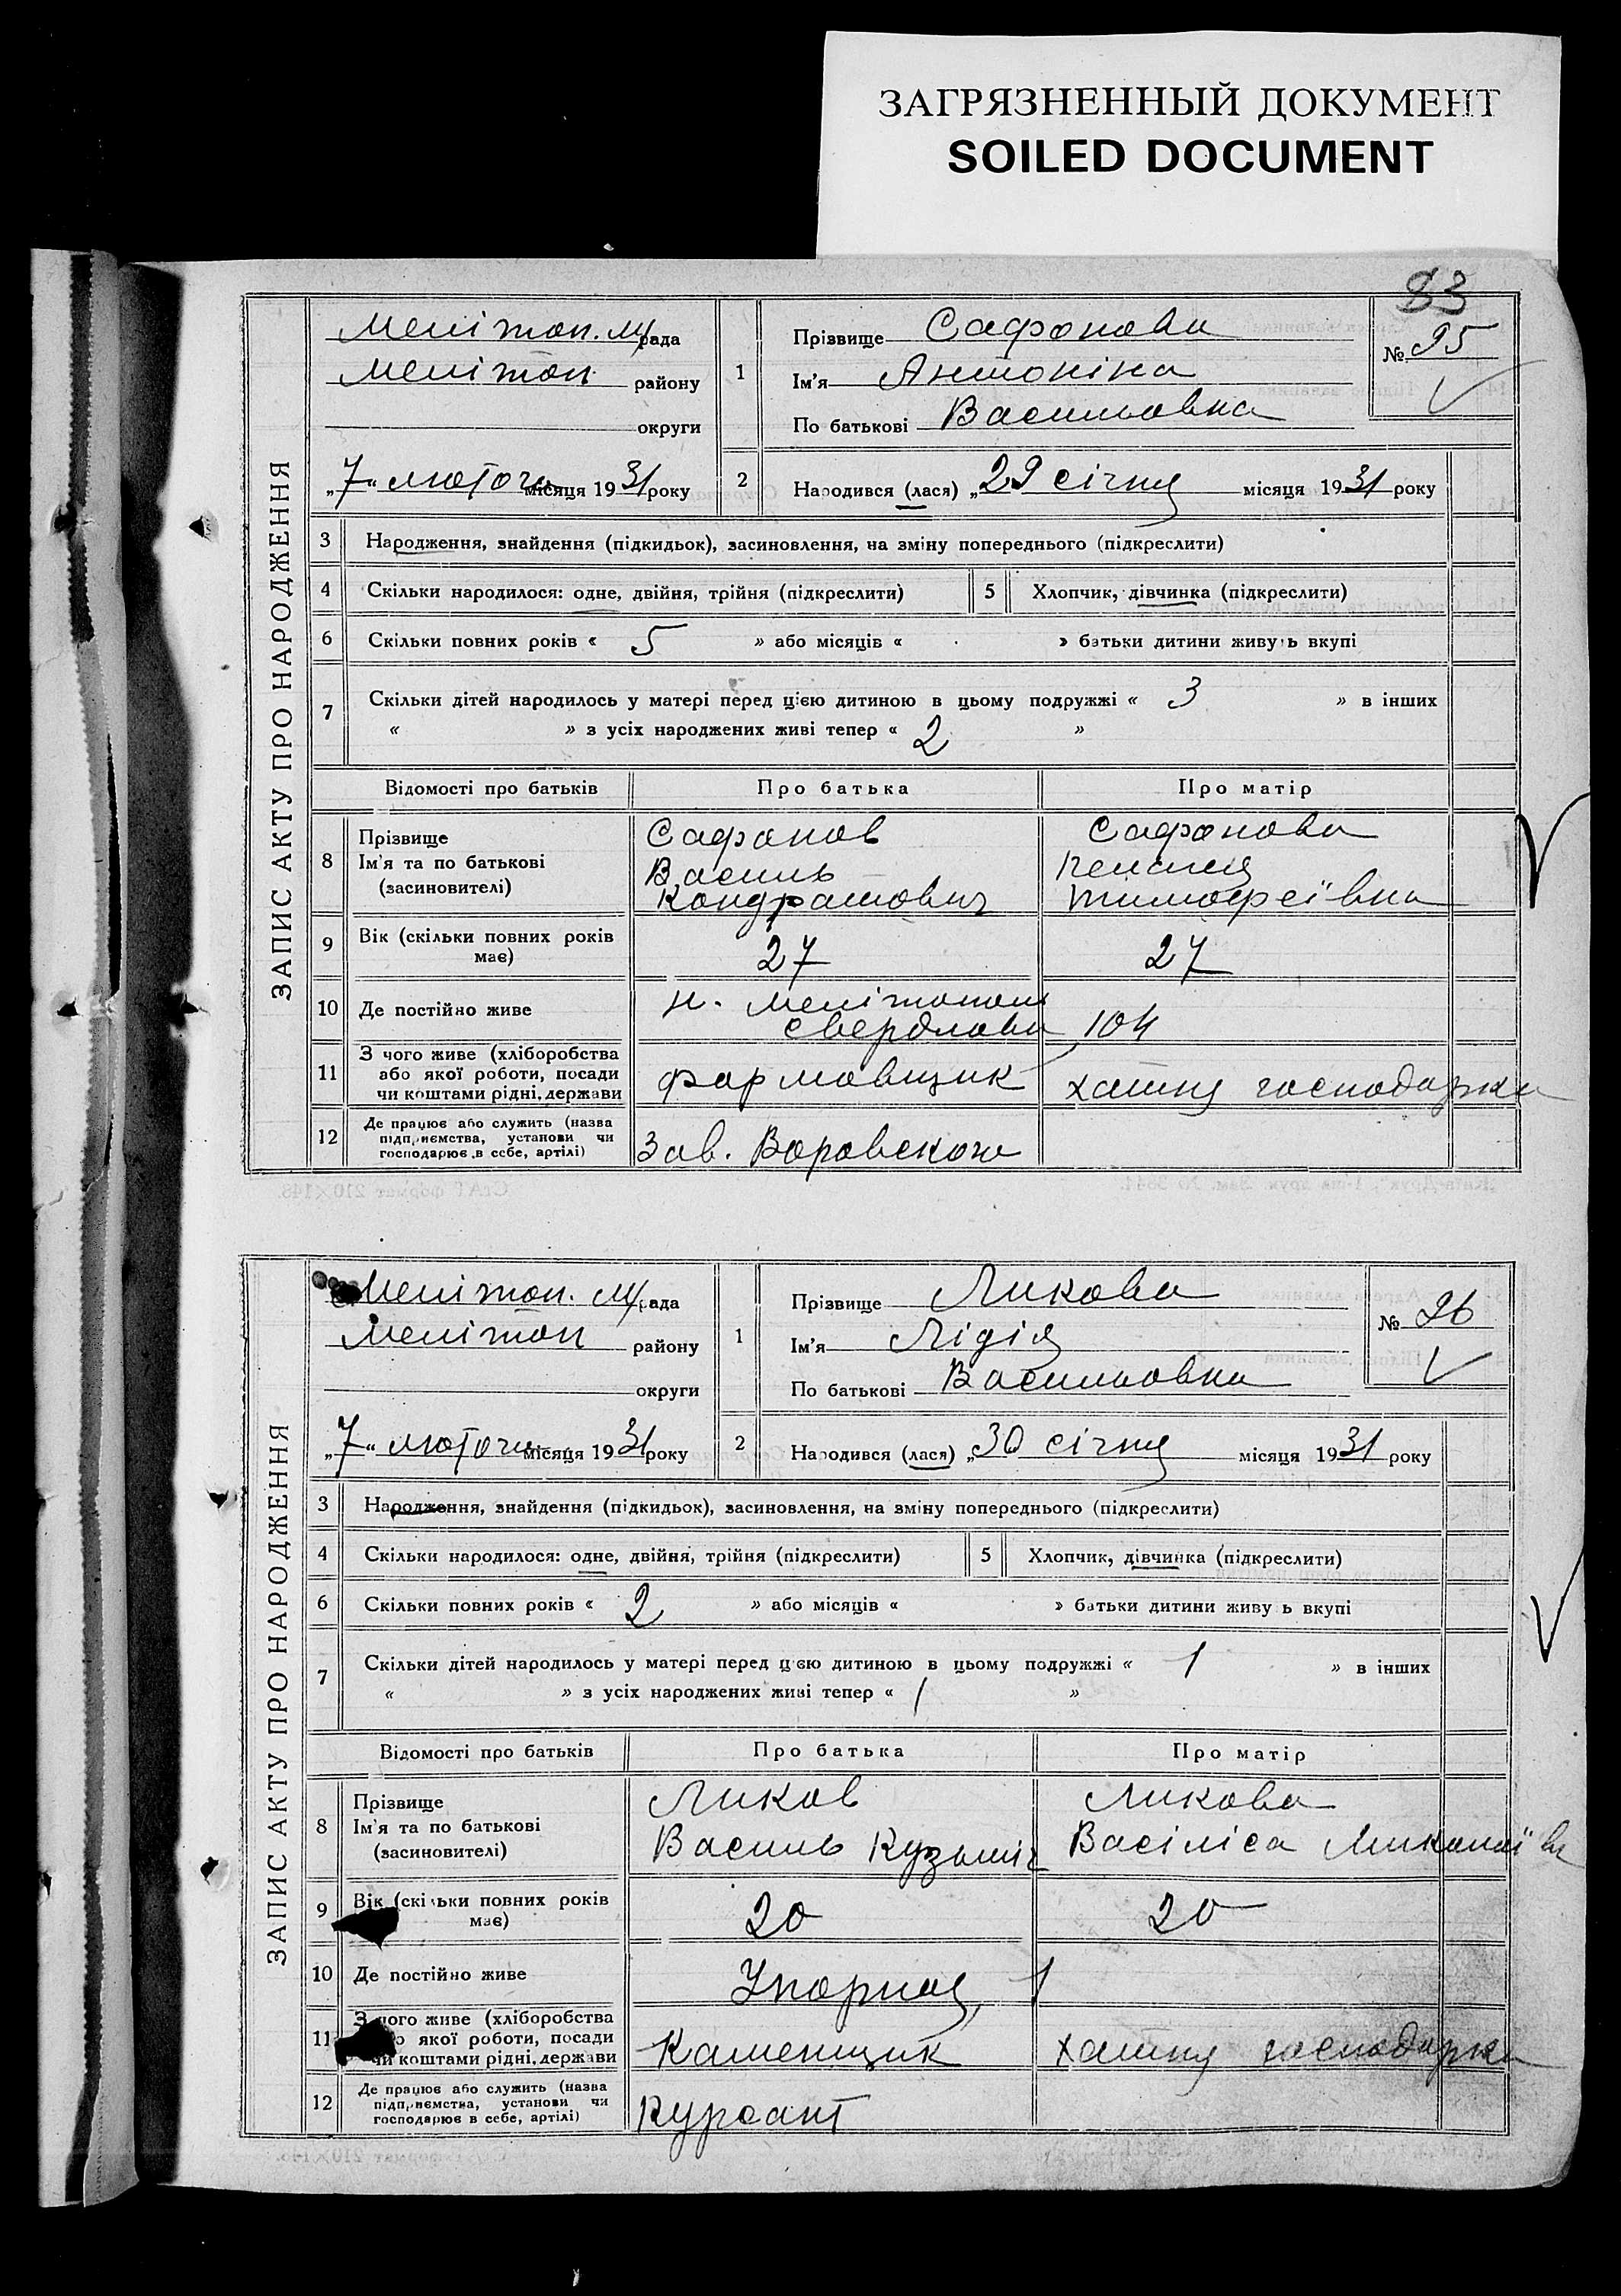 ЗАГРЯЗНЕННЫЙ ДОКУМЕНТ
SOILED DOCUMENT
83
ЗАПИС АКТУ ПРО НАРОДЖЕННЯ
Мелітоп. м/рада
Мелітоп району
округи
„7“ лютого місяця 1931 року
1
Прізвище Сафонова
Ім'я Антоніна
По батькові Васильовна
№ 95
2
Народився (лася) „29 січня місяця 1931 року
3 Народження, знайдення (підкидьок), засиновлення, на зміну попереднього (підкреслити)
4 Скільки народилося: одне, двійня, трійня (підкреслити)
5 Хлопчик, дівчинка (підкреслити)
6 Скільки повних років « 5 » або місяців « » батьки дитини живуть вкупі
7 Скільки дітей народилось у матері перед цією дитиною в цьому подружжі « 3 » в інших
« » з усіх народжених живі тепер « 2 »
Відомості про батьків Про батька Про матір
8 Прізвище Сафонов Сафонова
Ім'я та по батькові Василь
(засиновителі) Кондратович Тимофеївна
9 Вік (скільки повних років має) 27 27
10 Де постійно живе м. Мелітополь
Свердлова 104
11 З чого живе (хліборобства
або якої роботи, посади
чи коштами рідні, держави Формовщик хатня господарка
12 Де працює або служить (назва
підприємства, установи чи
господарює в себе, артілі) Зав. Воровского
СтАТ формат 210×148.
ЗАПИС АКТУ ПРО НАРОДЖЕННЯ
Мелітоп. м/рада
Мелітоп району
округи
„7“ лютого місяця 1931 року
1
Прізвище Ликова
Ім'я Лідія
По батькові Васильовна
№ 96
2
Народився (лася) „30 січня місяця 1931 року
3 Народження, знайдення (підкидьок), засиновлення, на зміну попереднього (підкреслити)
4 Скільки народилося: одне, двійня, трійня (підкреслити)
5 Хлопчик, дівчинка (підкреслити)
6 Скільки повних років « 2 » або місяців « » батьки дитини живу ь вкупі
7 Скільки дітей народилось у матері перед цією дитиною в цьому подружжі « 1 » в інших
« » з усіх народжених живі тепер « 1 »
Відомості про батьків Про батька Про матір
8 Прізвище Ликов Ликова
Ім'я та по батькові Василь Кузьміч Васіліса Миколаївн
(засиновителі)
9 Вік (скільки повних років має) 20 20
10 Де постійно живе Упорная, 1
11 З чого живе (хліборобства
якої роботи, посади
чи коштами рідні, держави Каменщик хатня господарка
12 Де працює або служить (назва
підприємства, установи чи
господарює в себе, артілі) Курсант